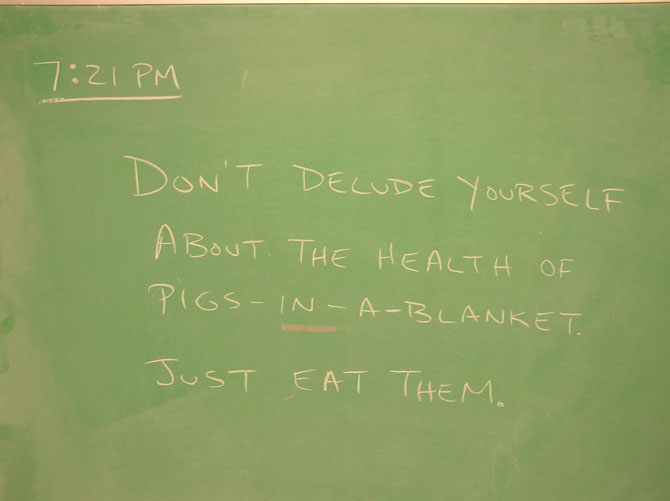 7:21 PM
DON'T DELUDE YOURSELF
ABOUT THE HEALTH OF
PIGS-IN-A-BLANKET.
JUST EAT THEM.